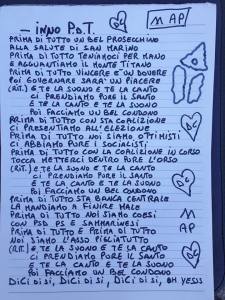 — INNO P.D.T.
M AP
PRIMA DI TUTTO UN BEL PROSECCHINO
ALLA SALUTE DI SAN MARINO
PRIMA DI TUTTO TENIAMOCI PER MANO
E AGGUANTIAMO IL MONTE TITANO
PRIMA DI TUTTO VINCERE E' UN DOVERE
POI GOVERNARE SARA' UN PIACERE
(RIT.) E TE LA SUONO E TE LA CANTO
CI PRENDIAMO PURE IL SANTO
E TE LA CANTO E TE LA SUONO
POI FACCIAMO UN BEL CONDONO
PRIMA DI TUTTO STA COALIZIONE
CI PRESENTIAMO ALL'ELEZIONE
PRIMA DI TUTTO NOI SIAMO OTTIMISTI
CI ABBIAMO PURE I SOCIALISTI
PRIMA DI TUTTO CON LA COALIZIONE IN CORSO
TOCCA METTERCI DENTRO PURE L'ORSO
(RIT.) E TE LA SUONO E TE LA CANTO
CI PRENDIAMO PURE IL SANTO
E TE LA CANTO E TE LA SUONO
POI FACCIAMO UN BEL CONDONO
PRIMA DI TUTTO STA BANCA CENTRALE
LA MANDIAMO A FINIRE MALE
PRIMA DI TUTTO NOI SIAMO COESI
CON PSD PS E SAMMARINESI
M
PRIMA DI TUTTO E PRIMA DI TUTTO
AP
NOI SIAMO L'ASSO PIGLIATUTTO
(RIT.) E TE LA SUONO E TE LA CANTO
CI PRENDIAMO PURE IL SANTO
E TE LA CANTO E TE LA SUONO
POI FACCIAMO UN BEL CONDONO
DICI DI SI, DICI DI SI, DICI DI SI, OH YESSS